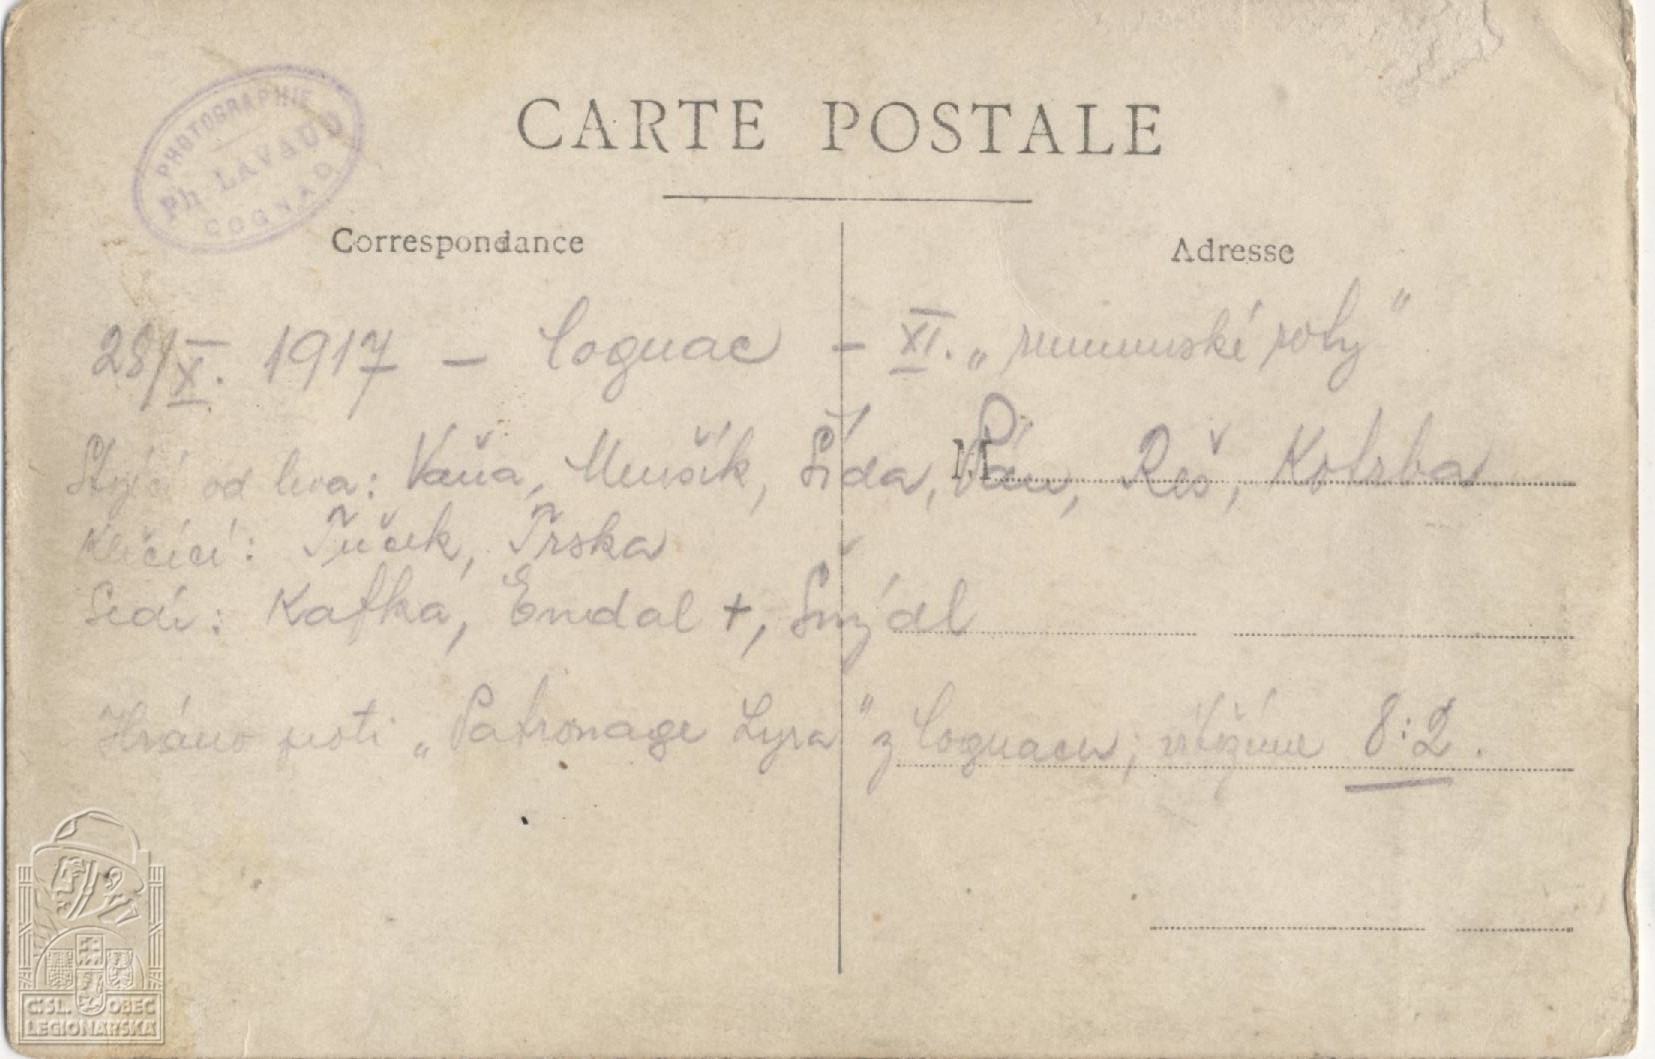 PHOTOGRAPHIE
Ph. LAVAUD
COGNAC
CARTE POSTALE
Correspondance
Adresse
28/X. 1917 – Cognac – XI. „rumunské roty"
Stojící od leva: Váňa, Menšík, Šída, Pán, Reš, Kolrba
M
Klečící: Tuček, Trska
Sedí: Kafka, Endal +, Šnýdl
Hráno proti „Patronage Lyra" z Cognacu; vítězíme 8:2.
ČSL. OBEC
LEGIONÁŘSKÁ